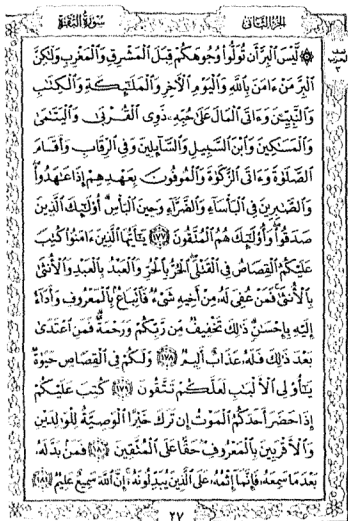 الجزء الثاني
سورة البقرة
۞ لَّيْسَ ٱلْبِرَّ أَن تُوَلُّوا۟ وُجُوهَكُمْ قِبَلَ ٱلْمَشْرِقِ وَٱلْمَغْرِبِ وَلَٰكِنَّ
ٱلْبِرَّ مَنْ ءَامَنَ بِٱللَّهِ وَٱلْيَوْمِ ٱلْءَاخِرِ وَٱلْمَلَٰٓئِكَةِ وَٱلْكِتَٰبِ
وَٱلنَّبِيِّـۧنَ وَءَاتَى ٱلْمَالَ عَلَىٰ حُبِّهِۦ ذَوِى ٱلْقُرْبَىٰ وَٱلْيَتَٰمَىٰ
وَٱلْمَسَٰكِينَ وَٱبْنَ ٱلسَّبِيلِ وَٱلسَّآئِلِينَ وَفِى ٱلرِّقَابِ وَأَقَامَ
ٱلصَّلَوٰةَ وَءَاتَى ٱلزَّكَوٰةَ وَٱلْمُوفُونَ بِعَهْدِهِمْ إِذَا عَٰهَدُوا۟
وَٱلصَّٰبِرِينَ فِى ٱلْبَأْسَآءِ وَٱلضَّرَّآءِ وَحِينَ ٱلْبَأْسِ أُو۟لَٰٓئِكَ ٱلَّذِينَ
صَدَقُوا۟ وَأُو۟لَٰٓئِكَ هُمُ ٱلْمُتَّقُونَ ١٧٧ يَٰٓأَيُّهَا ٱلَّذِينَ ءَامَنُوا۟ كُتِبَ
عَلَيْكُمُ ٱلْقِصَاصُ فِى ٱلْقَتْلَى ٱلْحُرُّ بِٱلْحُرِّ وَٱلْعَبْدُ بِٱلْعَبْدِ وَٱلْأُنثَىٰ
بِٱلْأُنثَىٰ فَمَنْ عُفِىَ لَهُۥ مِنْ أَخِيهِ شَىْءٌ فَٱتِّبَاعٌۢ بِٱلْمَعْرُوفِ وَأَدَآءٌ
إِلَيْهِ بِإِحْسَٰنٍ ذَٰلِكَ تَخْفِيفٌ مِّن رَّبِّكُمْ وَرَحْمَةٌ فَمَنِ ٱعْتَدَىٰ
بَعْدَ ذَٰلِكَ فَلَهُۥ عَذَابٌ أَلِيمٌ ١٧٨ وَلَكُمْ فِى ٱلْقِصَاصِ حَيَوٰةٌ
يَٰٓأُو۟لِى ٱلْأَلْبَٰبِ لَعَلَّكُمْ تَتَّقُونَ ١٧٩ كُتِبَ عَلَيْكُمْ
إِذَا حَضَرَ أَحَدَكُمُ ٱلْمَوْتُ إِن تَرَكَ خَيْرًا ٱلْوَصِيَّةُ لِلْوَٰلِدَيْنِ
وَٱلْأَقْرَبِينَ بِٱلْمَعْرُوفِ حَقًّا عَلَى ٱلْمُتَّقِينَ ١٨٠ فَمَنۢ بَدَّلَهُۥ
بَعْدَمَا سَمِعَهُۥ فَإِنَّمَآ إِثْمُهُۥ عَلَى ٱلَّذِينَ يُبَدِّلُونَهُۥٓ إِنَّ ٱللَّهَ سَمِيعٌ عَلِيمٌ ١٨١
٢٧